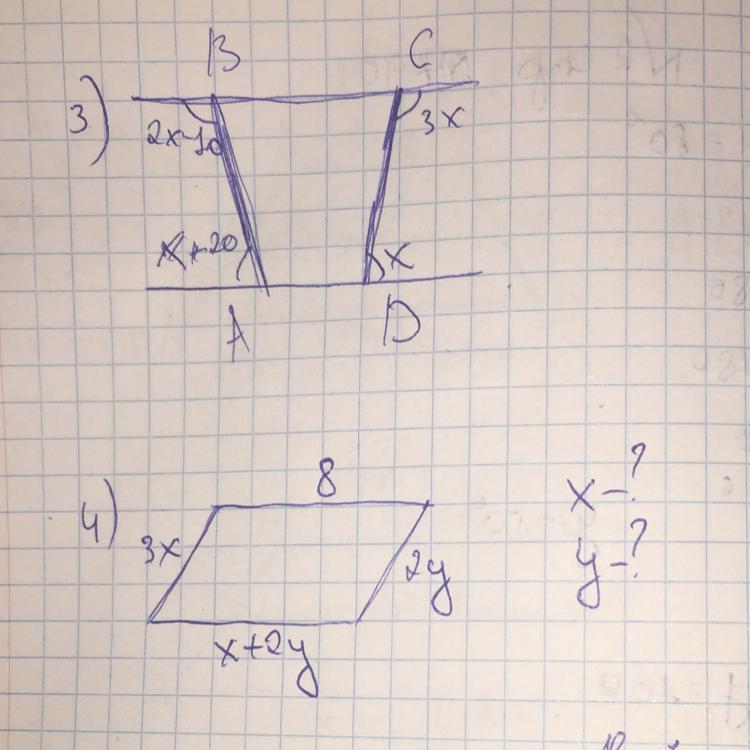 B C
3)
2x-10 3x
x+20 x
A D
8
4)
x-?
3x 2y
y-?
x+2y